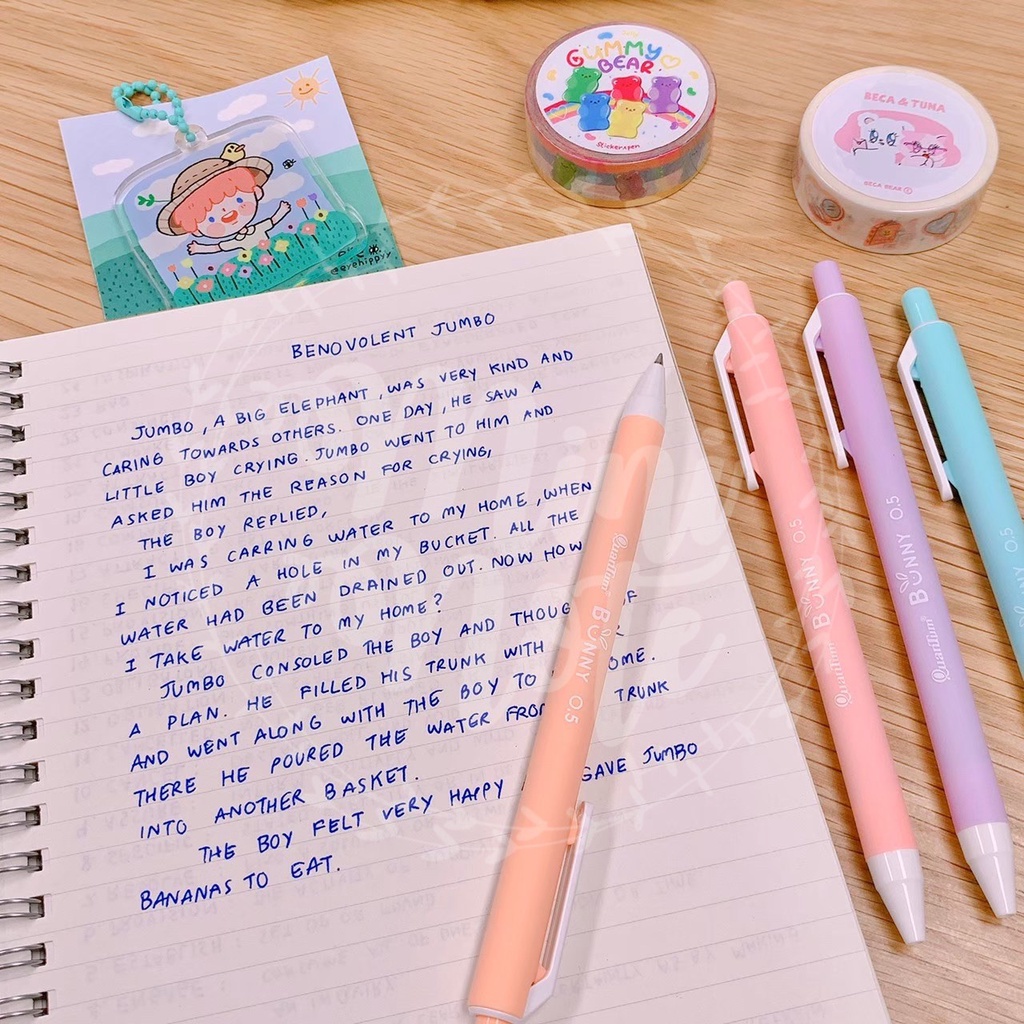 GUMMY
BEAR
BECA & TUNA
BECA BEAR
@eyehippyy
BENOVOLENT JUMBO
JUMBO, A BIG ELEPHANT, WAS VERY KIND AND
CARING TOWARDS OTHERS. ONE DAY, HE SAW A
LITTLE BOY CRYING. JUMBO WENT TO HIM AND
ASKED HIM THE REASON FOR CRYING,
THE BOY REPLIED,
I WAS CARRING WATER TO MY HOME, WHEN
I NOTICED A HOLE IN MY BUCKET. ALL THE
WATER HAD BEEN DRAINED OUT. NOW HOW
I TAKE WATER TO MY HOME?
JUMBO CONSOLED THE BOY AND THOUG OF
A PLAN. HE FILLED HIS TRUNK WITH
AND WENT ALONG WITH THE BOY TO OME.
THERE HE POURED THE WATER FRO TRUNK
INTO ANOTHER BASKET.
THE BOY FELT VERY HAPPY GAVE JUMBO
BANANAS TO EAT.
Quantum BUNNY 0.5
Quantum BUNNY 0.5
Quantum BUNNY 0.5